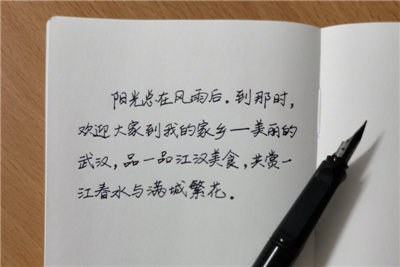 阳光总在风雨后。到那时，
欢迎大家到我的家乡一美丽的
武汉，品一品江汉美食，共赏一
江春水与满城繁花。